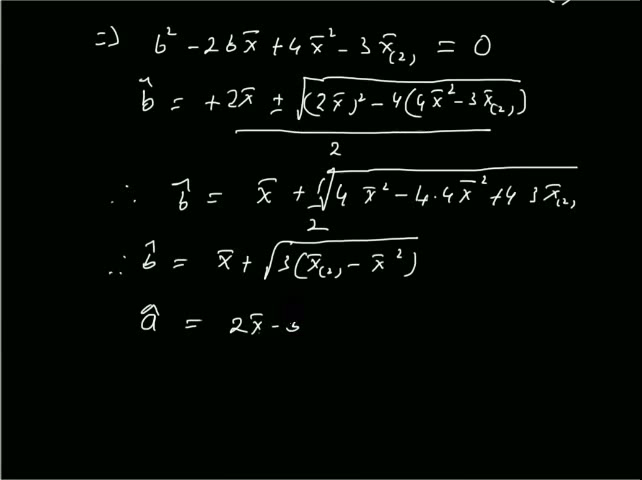 => b² - 2bx̄ + 4x̄² - 3x̄₍₂₎ = 0
b̂ = +2x̄ ± √((2x̄)² - 4(4x̄² - 3x̄₍₂₎)) / 2
∴ b̂ = x̄ + 1/2 √(4x̄² - 4·4x̄² + 4 3x̄₍₂₎
∴ b̂ = x̄ + √(3(x̄₍₂₎ - x̄²))
â = 2x̄ -